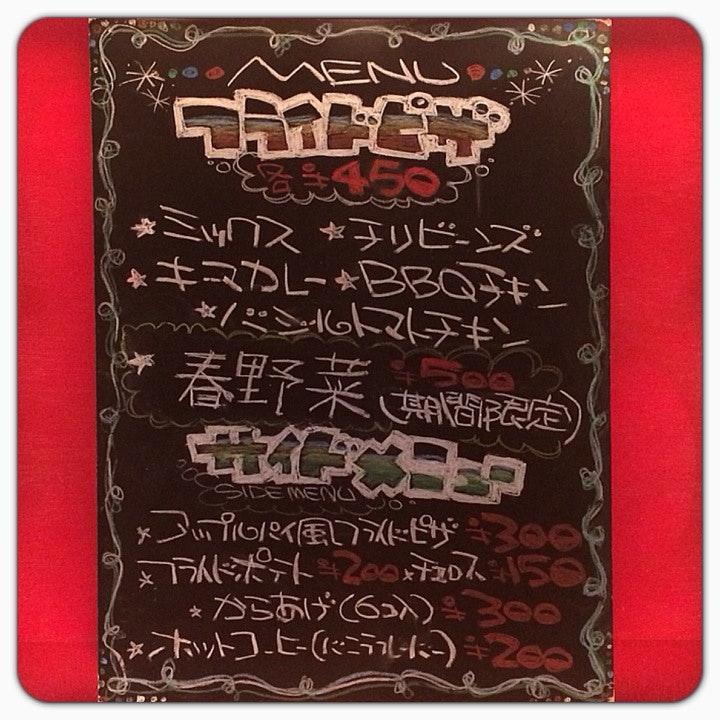 MENU
フライドピザ
各¥450
★ミックス ★チリビーンズ
★キーマカレー★BBQチキン
★バジルトマトチキン
★春野菜 ¥500
(期間限定)
サイドメニュー
SIDE MENU
★アップルパイ風フライドピザ ¥300
★フライドポテト ¥200 ★チュロス ¥150
★からあげ(6コ入) ¥300
★ホットコーヒー(バニラフレーバー) ¥200